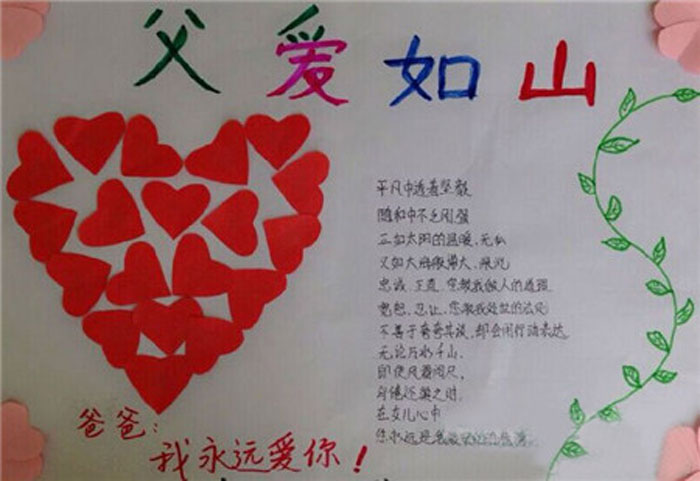 父爱如山
平凡中透着坚毅
随和中不乏刚强
正如太阳的温暖、无私
又如大海般博大、深沉
忠诚、正直、您教我做人的道理
宽恕、忍让、您教我处世的法则
不善于夸夸其谈、却会用行动表达
无论万水千山、
即使风霜闭尺、
身倦还巢之时、
在女儿心中
您永远是我
爸爸：
我永远爱你！